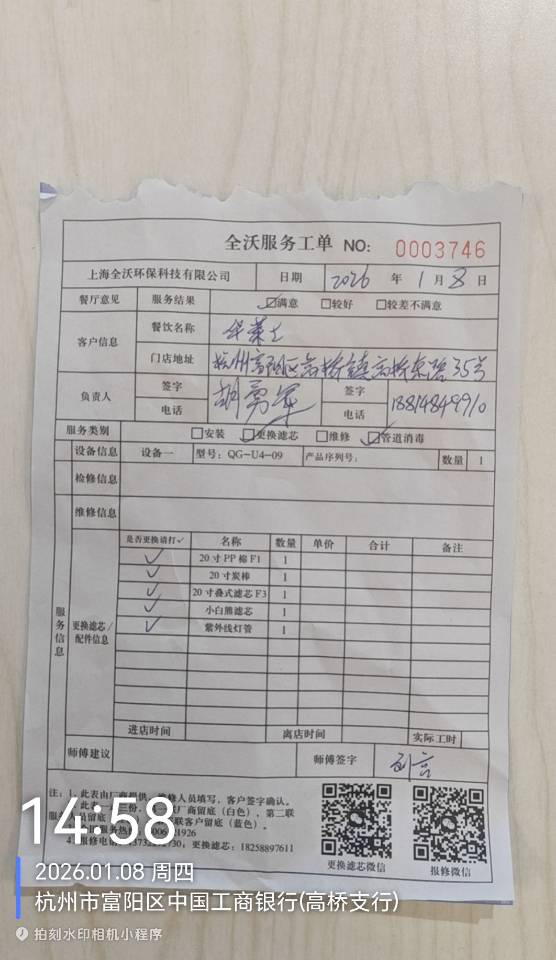 全沃服务工单 NO: 0003746
上海全沃环保科技有限公司 日期 2026 年 1 月 8 日
餐厅意见 服务结果 ☑满意 □较好 □较差不满意
客户信息 餐饮名称 华莱士
门店地址 杭州富阳区高桥镇高桥东路35号
负责人 签字 胡勇军 签字
电话 电话 18814849910
服务类别 □安装 ☑更换滤芯 □维修 ☑管道消毒
设备信息 设备一 型号: QG-U4-09 产品序列号: 数量 1
检修信息
维修信息
服务信息 更换滤芯/配件信息
是否更换请打✓ 名称 数量 单价 合计 备注
✓ 20寸PP棉F1 1
✓ 20寸炭棒 1
✓ 20寸叠式滤芯F3 1
✓ 小白熊滤芯 1
✓ 紫外线灯管 1
进店时间 离店时间 实际工时
师傅建议 师傅签字
注: 1、此表由厂商提供，维修人员填写，客户签字确认。
厂留底（白色），第二联
员留底 联客户留底（蓝色）。
服务热 1926
更换滤芯: 18258897611
更换滤芯微信 报修微信
14:58
2026.01.08 周四
杭州市富阳区中国工商银行(高桥支行)
拍刻水印相机小程序